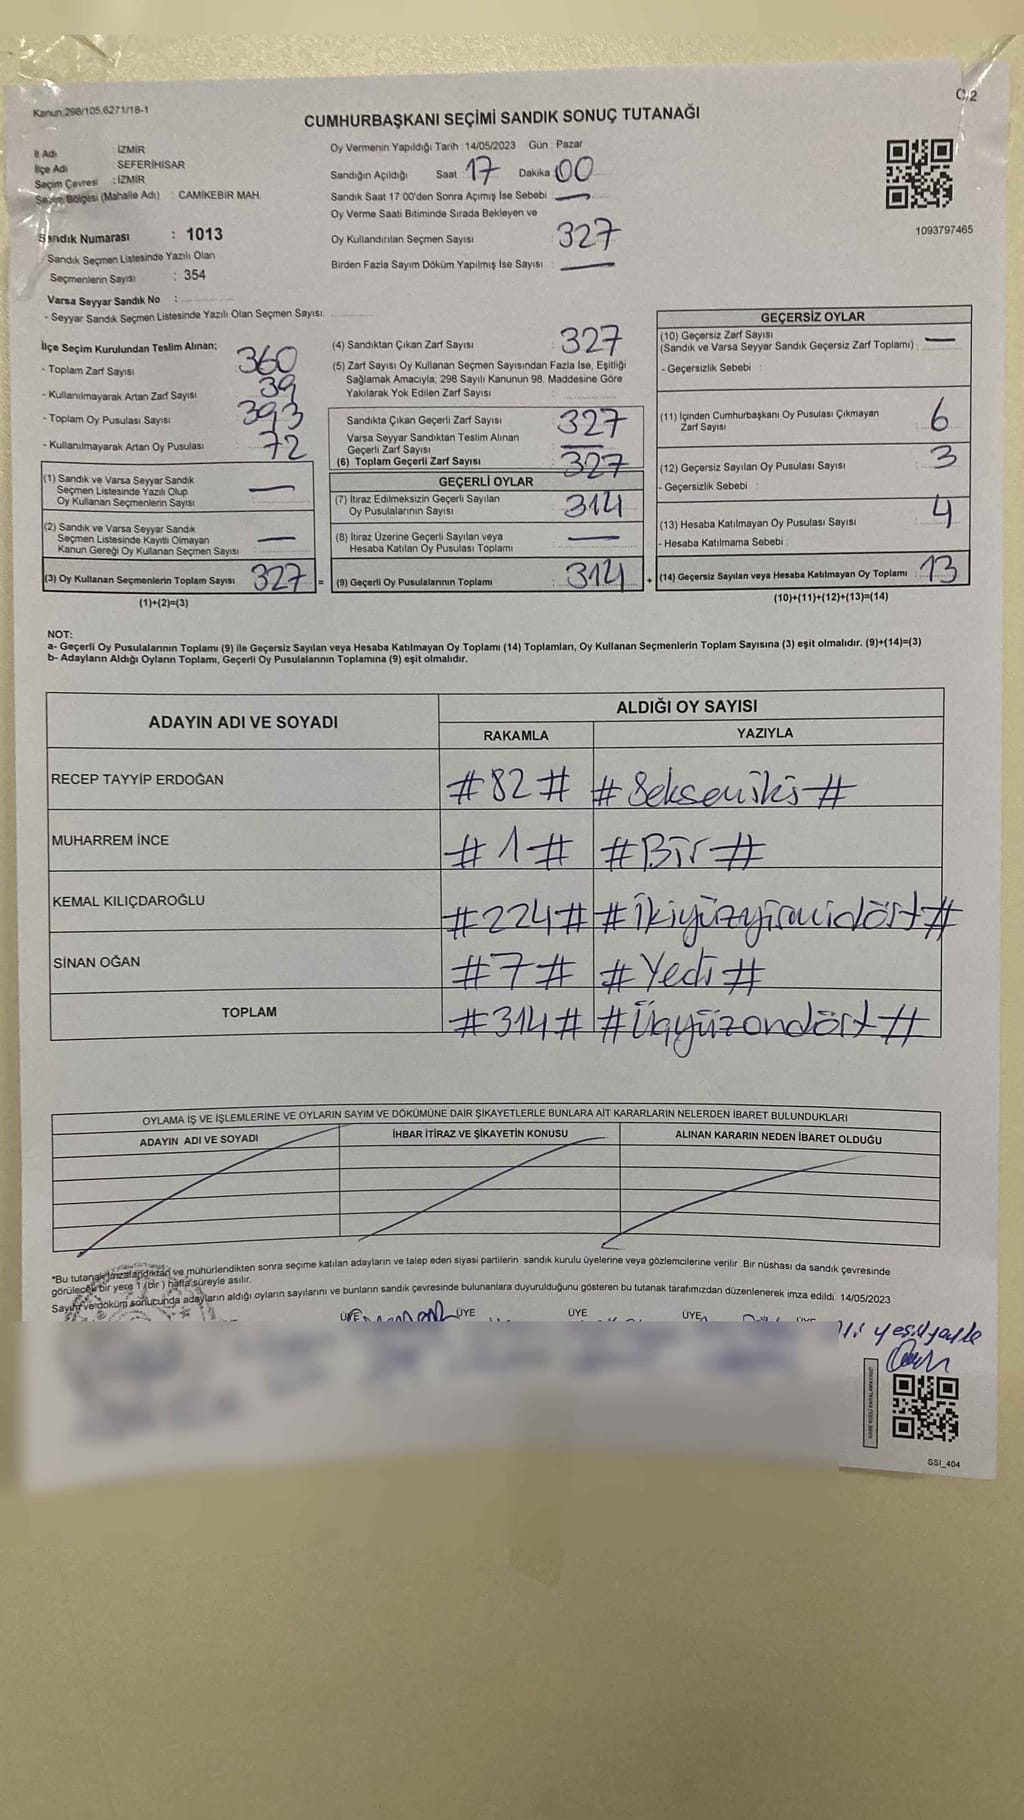 Kanun:298/105,6271/18-1
C.2
CUMHURBAŞKANI SEÇİMİ SANDIK SONUÇ TUTANAĞI
İl Adı : İZMİR
İlçe Adı : SEFERİHİSAR
Seçim Çevresi : İZMİR
Seçim Bölgesi (Mahalle Adı) : CAMİKEBİR MAH.
Sandık Numarası : 1013
Sandık Seçmen Listesinde Yazılı Olan
Seçmenlerin Sayısı : 354
Varsa Seyyar Sandık No :
- Seyyar Sandık Seçmen Listesinde Yazılı Olan Seçmen Sayısı:
Oy Vermenin Yapıldığı Tarih : 14/05/2023 Gün : Pazar
Sandığın Açıldığı Saat 17 Dakika 00
Sandık Saat 17:00'den Sonra Açımış İse Sebebi : —
Oy Verme Saati Bitiminde Sırada Bekleyen ve
Oy Kullandırılan Seçmen Sayısı : 327
Birden Fazla Sayım Döküm Yapılmış İse Sayısı : —
1093797465
İlçe Seçim Kurulundan Teslim Alınan;
- Toplam Zarf Sayısı 360
- Kullanılmayarak Artan Zarf Sayısı 39
- Toplam Oy Pusulası Sayısı 393
- Kullanılmayarak Artan Oy Pusulası 72
(1) Sandık ve Varsa Seyyar Sandık
Seçmen Listesinde Yazılı Olup
Oy Kullanan Seçmenlerin Sayısı : —
(2) Sandık ve Varsa Seyyar Sandık
Seçmen Listesinde Kayıtlı Olmayan
Kanun Gereği Oy Kullanan Seçmen Sayısı : —
(3) Oy Kullanan Seçmenlerin Toplam Sayısı 327 =
(1)+(2)=(3)
(4) Sandıktan Çıkan Zarf Sayısı : 327
(5) Zarf Sayısı Oy Kullanan Seçmen Sayısından Fazla İse, Eşitliği
Sağlamak Amacıyla; 298 Sayılı Kanunun 98. Maddesine Göre
Yakılarak Yok Edilen Zarf Sayısı :
Sandıkta Çıkan Geçerli Zarf Sayısı : 327
Varsa Seyyar Sandıktan Teslim Alınan
Geçerli Zarf Sayısı : —
(6) Toplam Geçerli Zarf Sayısı : 327
GEÇERLİ OYLAR
(7) İtiraz Edilmeksizin Geçerli Sayılan
Oy Pusulalarının Sayısı : 314
(8) İtiraz Üzerine Geçerli Sayılan veya
Hesaba Katılan Oy Pusulası Toplamı : —
(9) Geçerli Oy Pusulalarının Toplamı : 314 +
GEÇERSİZ OYLAR
(10) Geçersiz Zarf Sayısı
(Sandık ve Varsa Seyyar Sandık Geçersiz Zarf Toplamı) : —
- Geçersizlik Sebebi :
(11) İçinden Cumhurbaşkanı Oy Pusulası Çıkmayan
Zarf Sayısı : 6
(12) Geçersiz Sayılan Oy Pusulası Sayısı : 3
- Geçersizlik Sebebi :
(13) Hesaba Katılmayan Oy Pusulası Sayısı : 4
- Hesaba Katılmama Sebebi :
(14) Geçersiz Sayılan veya Hesaba Katılmayan Oy Toplamı : 13
(10)+(11)+(12)+(13)=(14)
NOT:
a- Geçerli Oy Pusulalarının Toplamı (9) ile Geçersiz Sayılan veya Hesaba Katılmayan Oy Toplamı (14) Toplamları, Oy Kullanan Seçmenlerin Toplam Sayısına (3) eşit olmalıdır. (9)+(14)=(3)
b- Adayların Aldığı Oyların Toplamı, Geçerli Oy Pusulalarının Toplamına (9) eşit olmalıdır.
ADAYIN ADI VE SOYADI
ALDIĞI OY SAYISI
RAKAMLA YAZIYLA
RECEP TAYYİP ERDOĞAN #82# #Sekseniki#
MUHARREM İNCE #1# #Bir#
KEMAL KILIÇDAROĞLU #224# #İkiyüzyirmidört#
SİNAN OĞAN #7# #Yedi#
TOPLAM #314# #Üçyüzondört#
OYLAMA İŞ VE İŞLEMLERİNE VE OYLARIN SAYIM VE DÖKÜMÜNE DAİR ŞİKAYETLERLE BUNLARA AİT KARARLARIN NELERDEN İBARET BULUNDUKLARI
ADAYIN ADI VE SOYADI İHBAR İTİRAZ VE ŞİKAYETİN KONUSU ALINAN KARARIN NEDEN İBARET OLDUĞU
*Bu tutanak imzalandıktan ve mühürlendikten sonra seçime katılan adayların ve talep eden siyasi partilerin sandık kurulu üyelerine veya gözlemcilerine verilir. Bir nüshası da sandık çevresinde
görülecek bir yere 1 (bir) hafta süreyle asılır.
Sayım ve döküm sonucunda adayların aldığı oyların sayılarını ve bunların sandık çevresinde bulunanlara duyurulduğunu gösteren bu tutanak tarafımızdan düzenlenerek imza edildi. 14/05/2023
ÜYE ÜYE ÜYE ÜYE
SSI_404